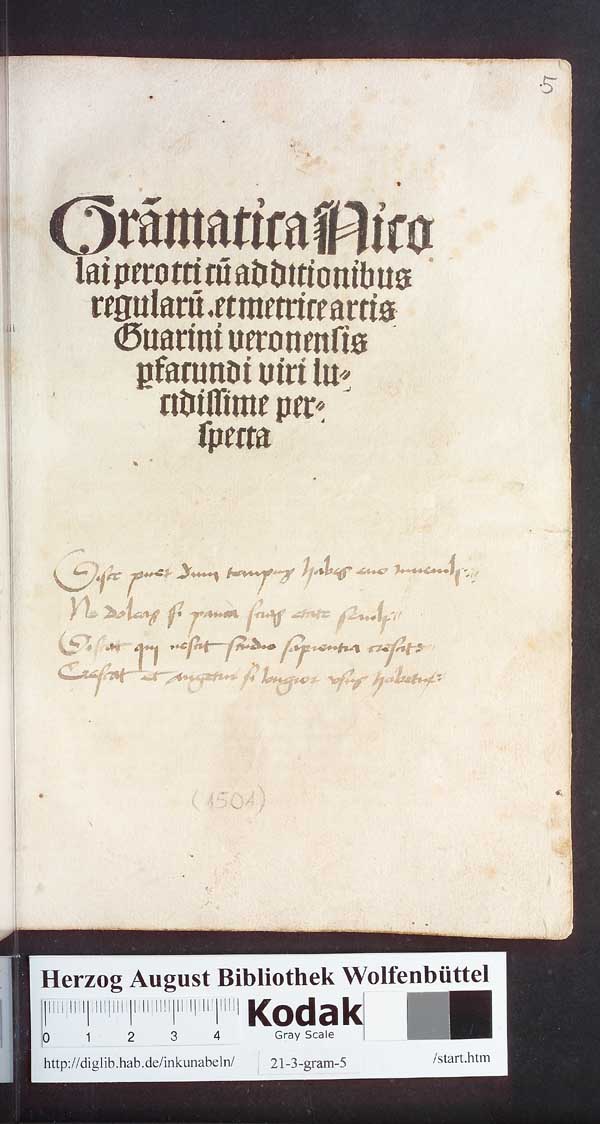 5
Grãmatica Nico
lai perotti cũ additionibus
regularũ .et metrice artis
Guarini veronensis
ꝑfacundi viri lu⸗
cidissime per⸗
specta
Disce puer dum tempus habes evo
Ne doleas si pauca scias etate
Discat qui nescit studio sapientia crescit
Crescat et augetur si longior usus habetur
(1501)
Herzog August Bibliothek Wolfenbüttel
0 1 2 3 4
Kodak
Gray Scale
http://diglib.hab.de/inkunabeln/ 21-3-gram-5 /start.htm